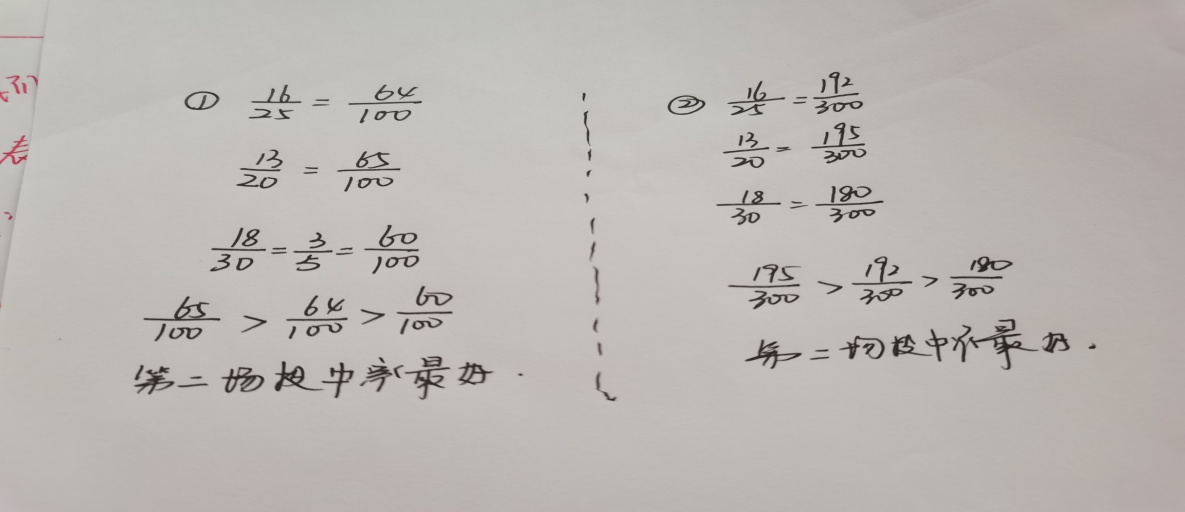 们
表
① 16/25 = 64/100
13/20 = 65/100
18/30 = 3/5 = 60/100
65/100 > 64/100 > 60/100
第二场投中率最好.
② 16/25 = 192/300
13/20 = 195/300
18/30 = 180/300
195/300 > 192/300 > 180/300
第二场投中率最好.